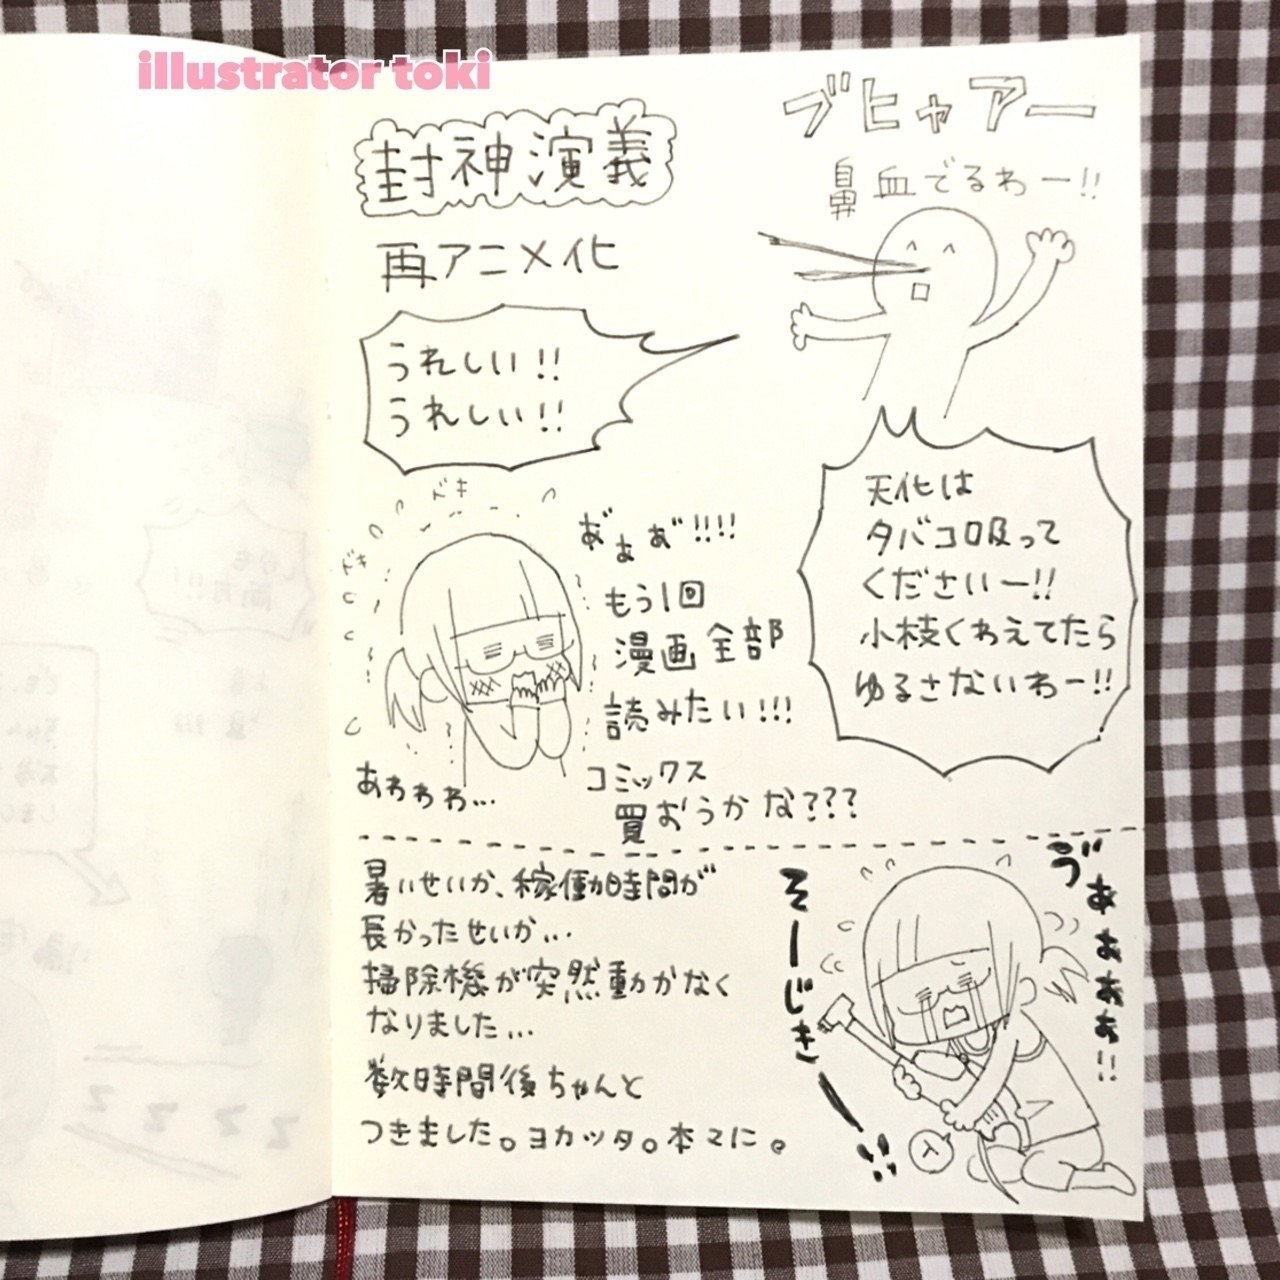 illustrator toki
封神演義
再アニメ化
うれしい!!
うれしい!!
ブヒャアー
鼻血でるわー!!
天化は
タバコ吸って
くださいー!!
小枝くわえてたら
ゆるさないわー!!
ドキ
ドキ
あ゛ぁぁ゛!!!!
もう1回
漫画全部
読みたい!!!
あわわわ…
コミックス
買おうかな???
暑いせいか、稼働時間が
長かったせいか…
掃除機が突然動かなく
なりました…
数時間後ちゃんと
つきました。ヨカッタ。本マに。
そーじきー!!
う゛ぁぁぁぁ!!
入